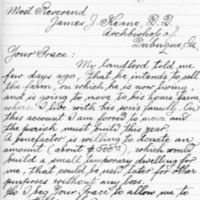 Most Reverend
James J. Keane, D.D.
Archbishop of
Dubuque, Ia.
Your Grace:
My landlord told me
few days ago, that he intends to sell
the farm, on which he is now living,
and is going to move to his home farm,
where I live with his son's family. On
this account I am forced to move and
the parish must build this year.
A benefactor is willing to donate an
amount (about $500), which would
build a small temporary dwelling for
me, that could be used later for other
purposes without any loss.
So I beg Your Grace to allow me to